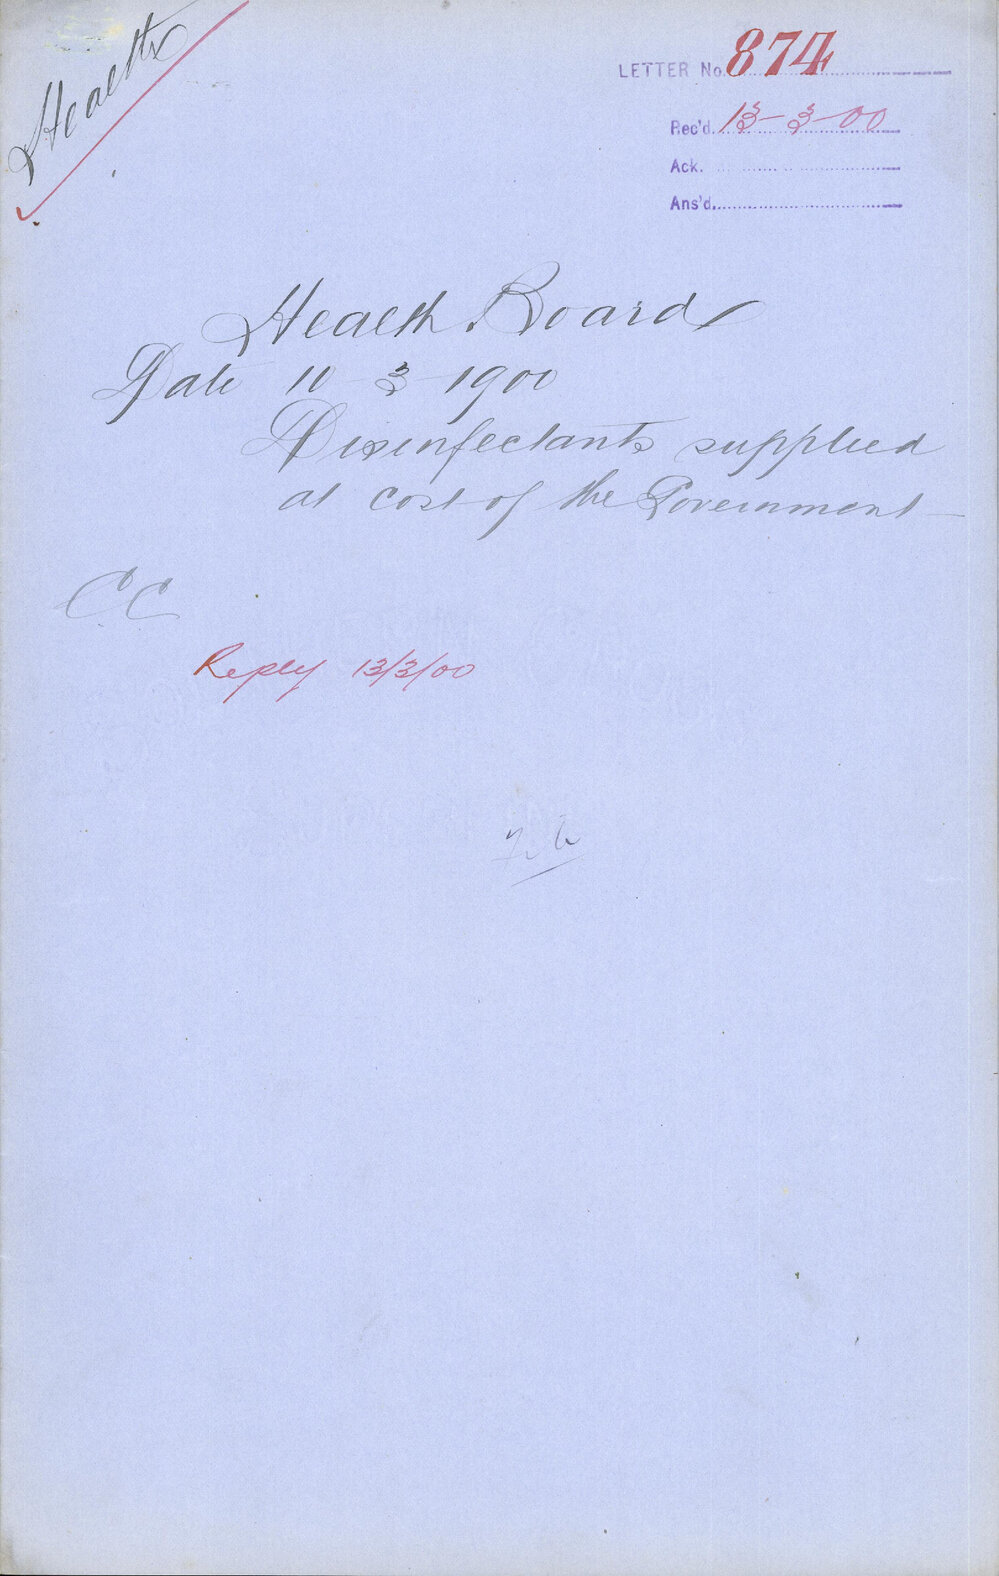 Health
LETTER No. 874
Rec'd. 13-3-00
Ack.
Ans'd.
Health Board
Date 10 3 1900
Disinfectants supplied
at cost of the Government
CC
Reply 13/3/00